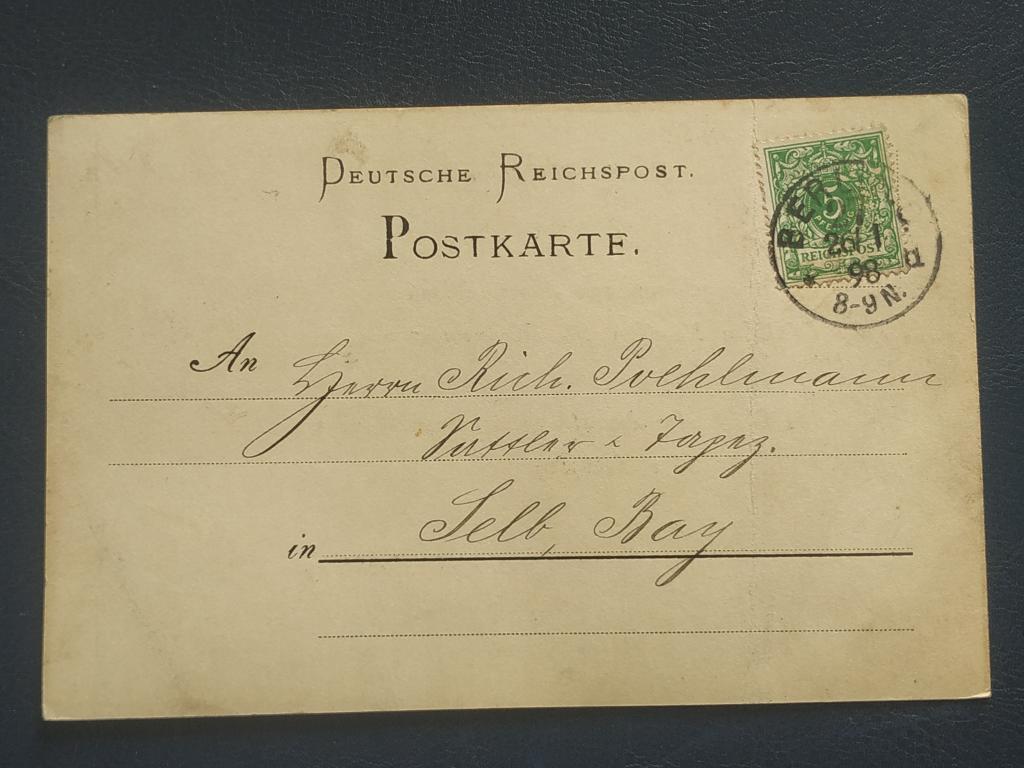 DEUTSCHE REICHSPOST.
POSTKARTE.
5
PFENNIG
REICHSPOST
BER
26/1
98
8-9 N.
a
An Herrn Rich. Poehlmann
Sattler & Tapez.
in Selb, Bay